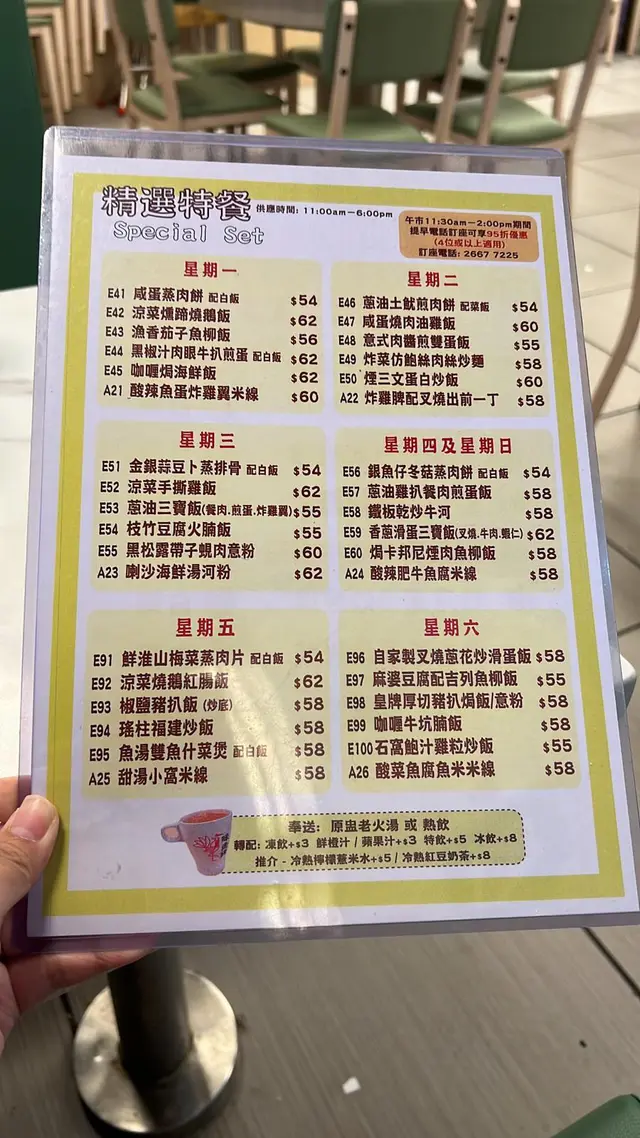 精選特餐 供應時間: 11:00am-6:00pm
Special Set
午市11:30am-2:00pm期間
提早電話訂座可享95折優惠
(4位或以上適用)
訂座電話: 2667 7225
星期一
E41 咸蛋蒸肉餅 配白飯 $54
E42 涼菜燻蹄燒鵝飯 $62
E43 漁香茄子魚柳飯 $56
E44 黑椒汁肉眼牛扒煎蛋 配白飯 $62
E45 咖喱焗海鮮飯 $62
A21 酸辣魚蛋炸雞翼米線 $60
星期二
E46 蔥油土魷煎肉餅 配菜飯 $54
E47 咸蛋燒肉油雞飯 $60
E48 意式肉醬煎雙蛋飯 $55
E49 炸菜仿鮑絲肉絲炒麵 $58
E50 煙三文蛋白炒飯 $60
A22 炸雞脾配叉燒出前一丁 $58
星期三
E51 金銀蒜豆卜蒸排骨 配白飯 $54
E52 涼菜手撕雞飯 $62
E53 蔥油三寶飯(餐肉.煎蛋.炸雞翼) $55
E54 枝竹豆腐火腩飯 $55
E55 黑松露帶子蜆肉意粉 $60
A23 喇沙海鮮湯河粉 $62
星期四及星期日
E56 銀魚仔冬菇蒸肉餅 配白飯 $54
E57 蔥油雞扒餐肉煎蛋飯 $58
E58 鐵板乾炒牛河 $58
E59 香蔥滑蛋三寶飯(叉燒.牛肉.蝦仁) $62
E60 焗卡邦尼煙肉魚柳飯 $58
A24 酸辣肥牛魚腐米線 $58
星期五
E91 鮮淮山梅菜蒸肉片 配白飯 $54
E92 涼菜燒鵝紅腸飯 $62
E93 椒鹽豬扒飯 (炒底) $58
E94 瑤柱福建炒飯 $58
E95 魚湯雙魚什菜煲 配白飯 $58
A25 甜湯小窩米線 $58
星期六
E96 自家製叉燒蔥花炒滑蛋飯 $58
E97 麻婆豆腐配吉列魚柳飯 $55
E98 皇牌厚切豬扒焗飯/意粉 $58
E99 咖喱牛坑腩飯 $58
E100 石窩鮑汁雞粒炒飯 $55
A26 酸菜魚腐魚米米線 $58
奉送: 原盅老火湯 或 熱飲
轉配: 凍飲+$3 鮮橙汁 / 蘋果汁+$3 特飲+$5 冰飲+$8
推介 - 冷熱檸檬薏米水+$5 / 冷熱紅豆奶茶+$8